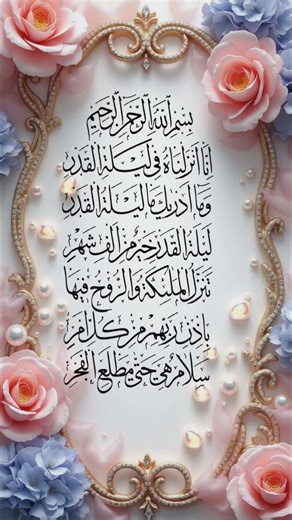 بسم الله الرحمن الرحيم
إنا أنزلناه في ليلة القدر
وما أدريك ما ليلة القدر
ليلة القدر خير من ألف شهر
تنزل الملئكة والروح فيها
بإذن ربهم من كل أمر
سلام هي حتى مطلع الفجر